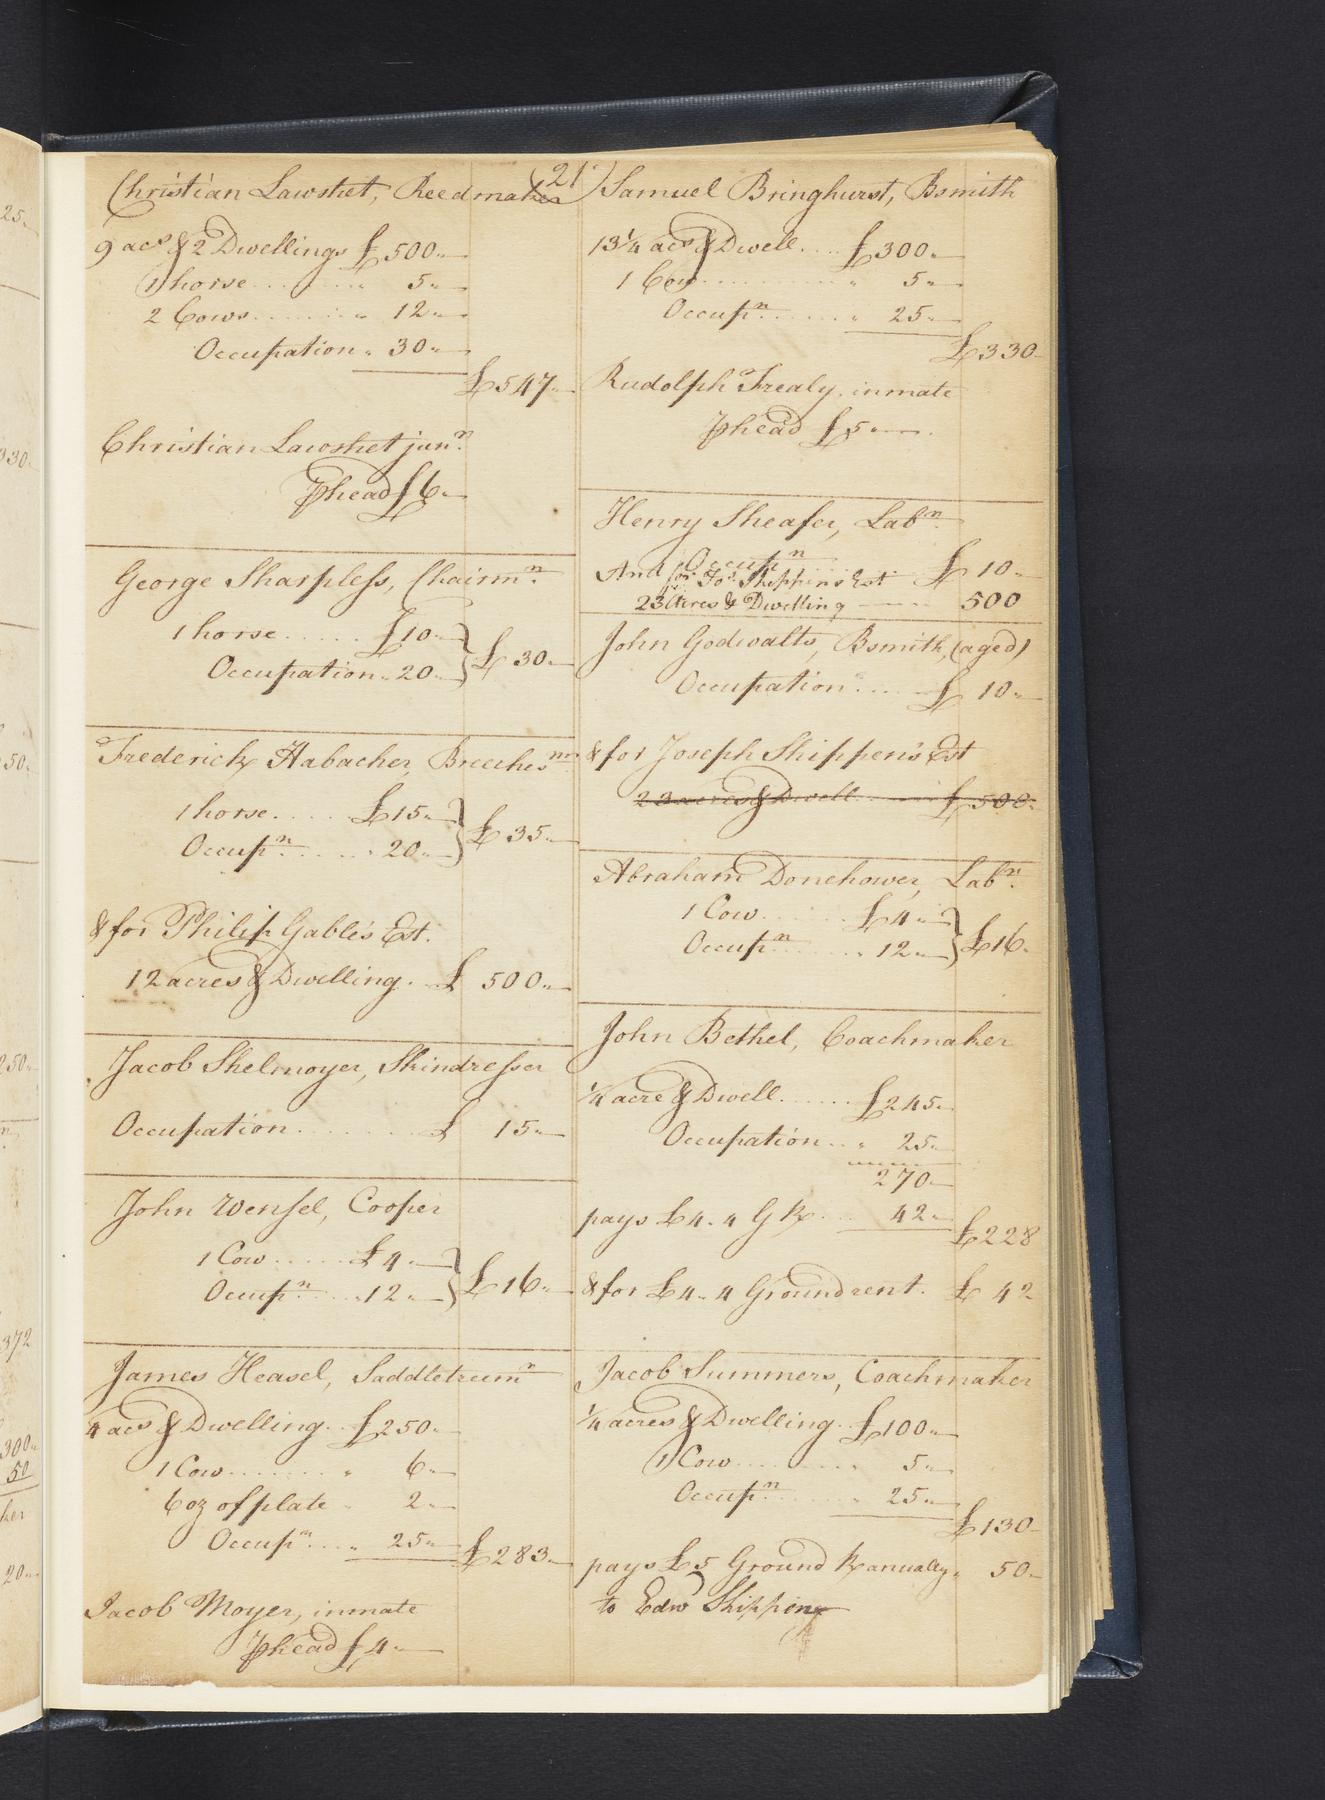 21
Christian Lawshet, Reedmaker
9 acs & 2 Dwellings £500
1 horse 5
2 Cows 12
Occupation 30
£547
Christian Lawshet junr.
P head £6
George Sharpless, Chairmr.
1 horse £10
Occupation 20 } £30
Frederick Habacher, Breechesmr
1 horse £15
Occupn. 20 } £35
& for Philip Gable's Est.
12 acres & Dwelling £500
Jacob Shelmoyer, Skindresser
Occupation £15
John Wensel, Cooper
1 Cow £4
Occupn. 12 } £16
James Heasel, Saddletreemr
4 acs & Dwelling £250
1 Cow 6
6 oz of plate 2
Occupn 25
£283
Jacob Moyer, inmate
P head £4
Samuel Bringhurst, Bsmith
13¼ acs & Dwell. £300
1 Cow 5
Occupn. 25
£330
Rudolph Frealy, inmate
P head £5
Henry Sheafer, Labr.
Occupn £10
And for Jos. Shippins Est
23 Acres & Dwelling 500
John Godwalts, Bsmith, (aged)
Occupation £10
& for Joseph Shippen's Est
23 acres & Dwell £500
Abraham Donehower, Labr.
1 Cow £4
Occupn. 12 } £16
John Bethel, Coachmaker
¼ acre & Dwell £245
Occupation 25
270
pays £4.4 G R 42
£228
& for £4.4 Groundrent. £42
Jacob Summers, Coachmaker
¼ acres & Dwelling £100
1 Cow 5
Occupn. 25
£130
pays £5 Ground R anually 50
to Edwd Shippen